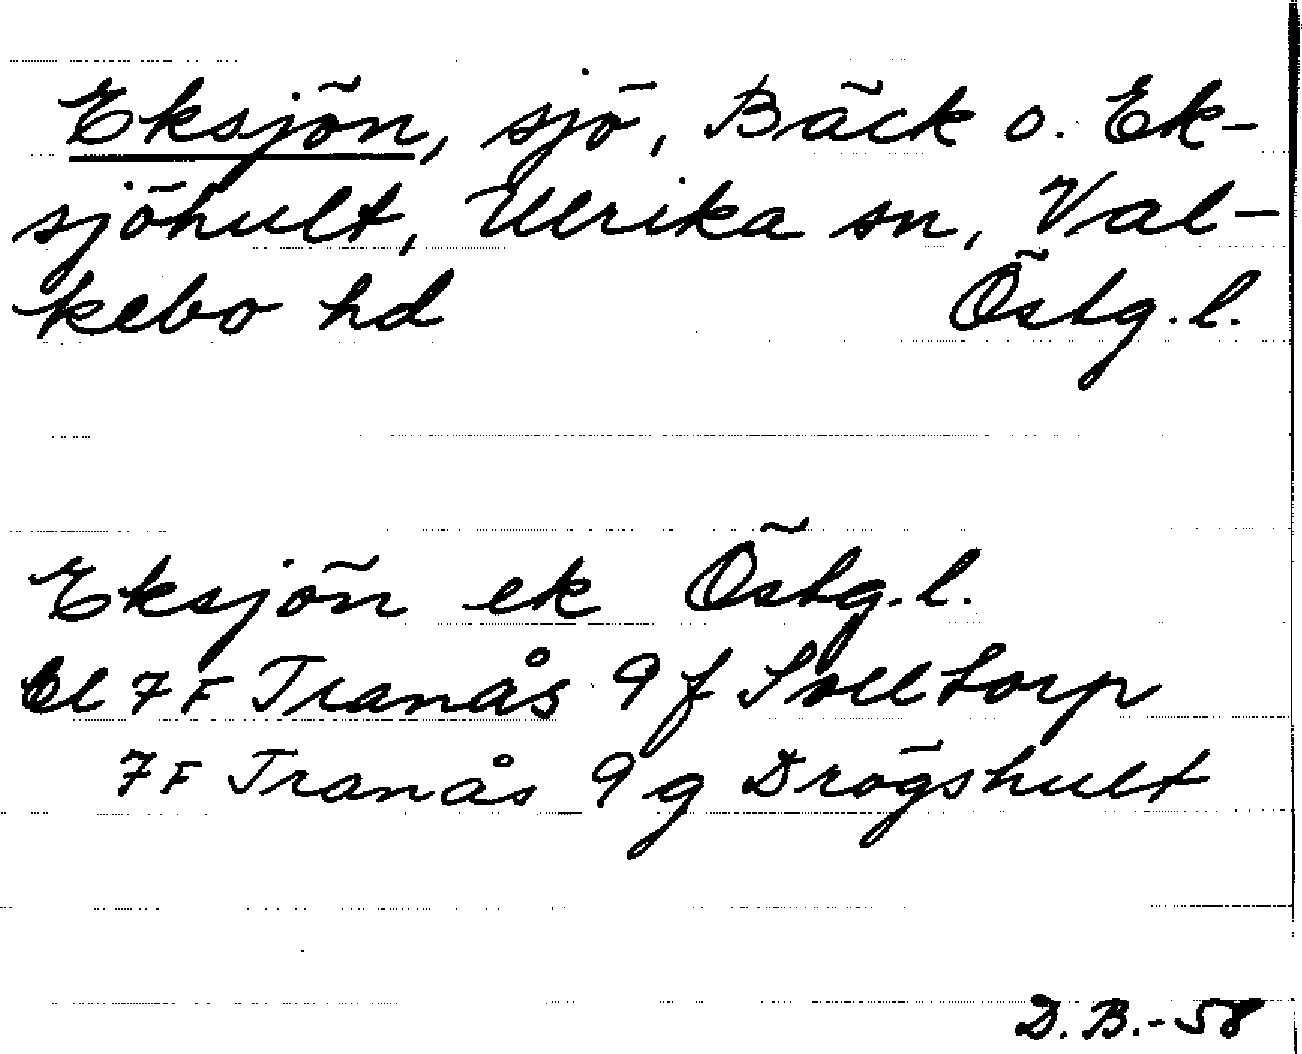 Eksjön, sjö, Bäck o. Ek-
sjöhult, Ulrika sn, Val-
kebo hd Östg. l.
Eksjön ek Östg. l.
7F Tranås 9f Solltorp
7F Tranås 9g Drögshult
D. B. - 58